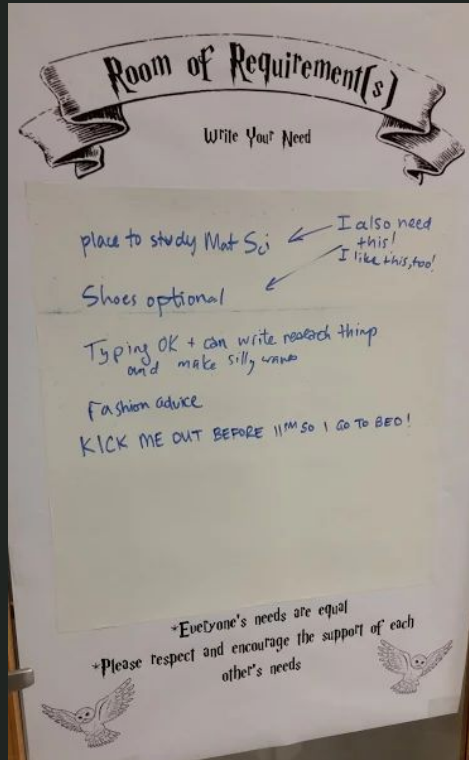 Room of Requirement(s)
Write Your Need
place to study Mat Sci
I also need
this!
I like this, too!
Shoes optional
Typing OK + can write research things
and make silly wands
Fashion advice
KICK ME OUT BEFORE 11PM SO I GO TO BED!
*Everyone's needs are equal
*Please respect and encourage the support of each
other's needs